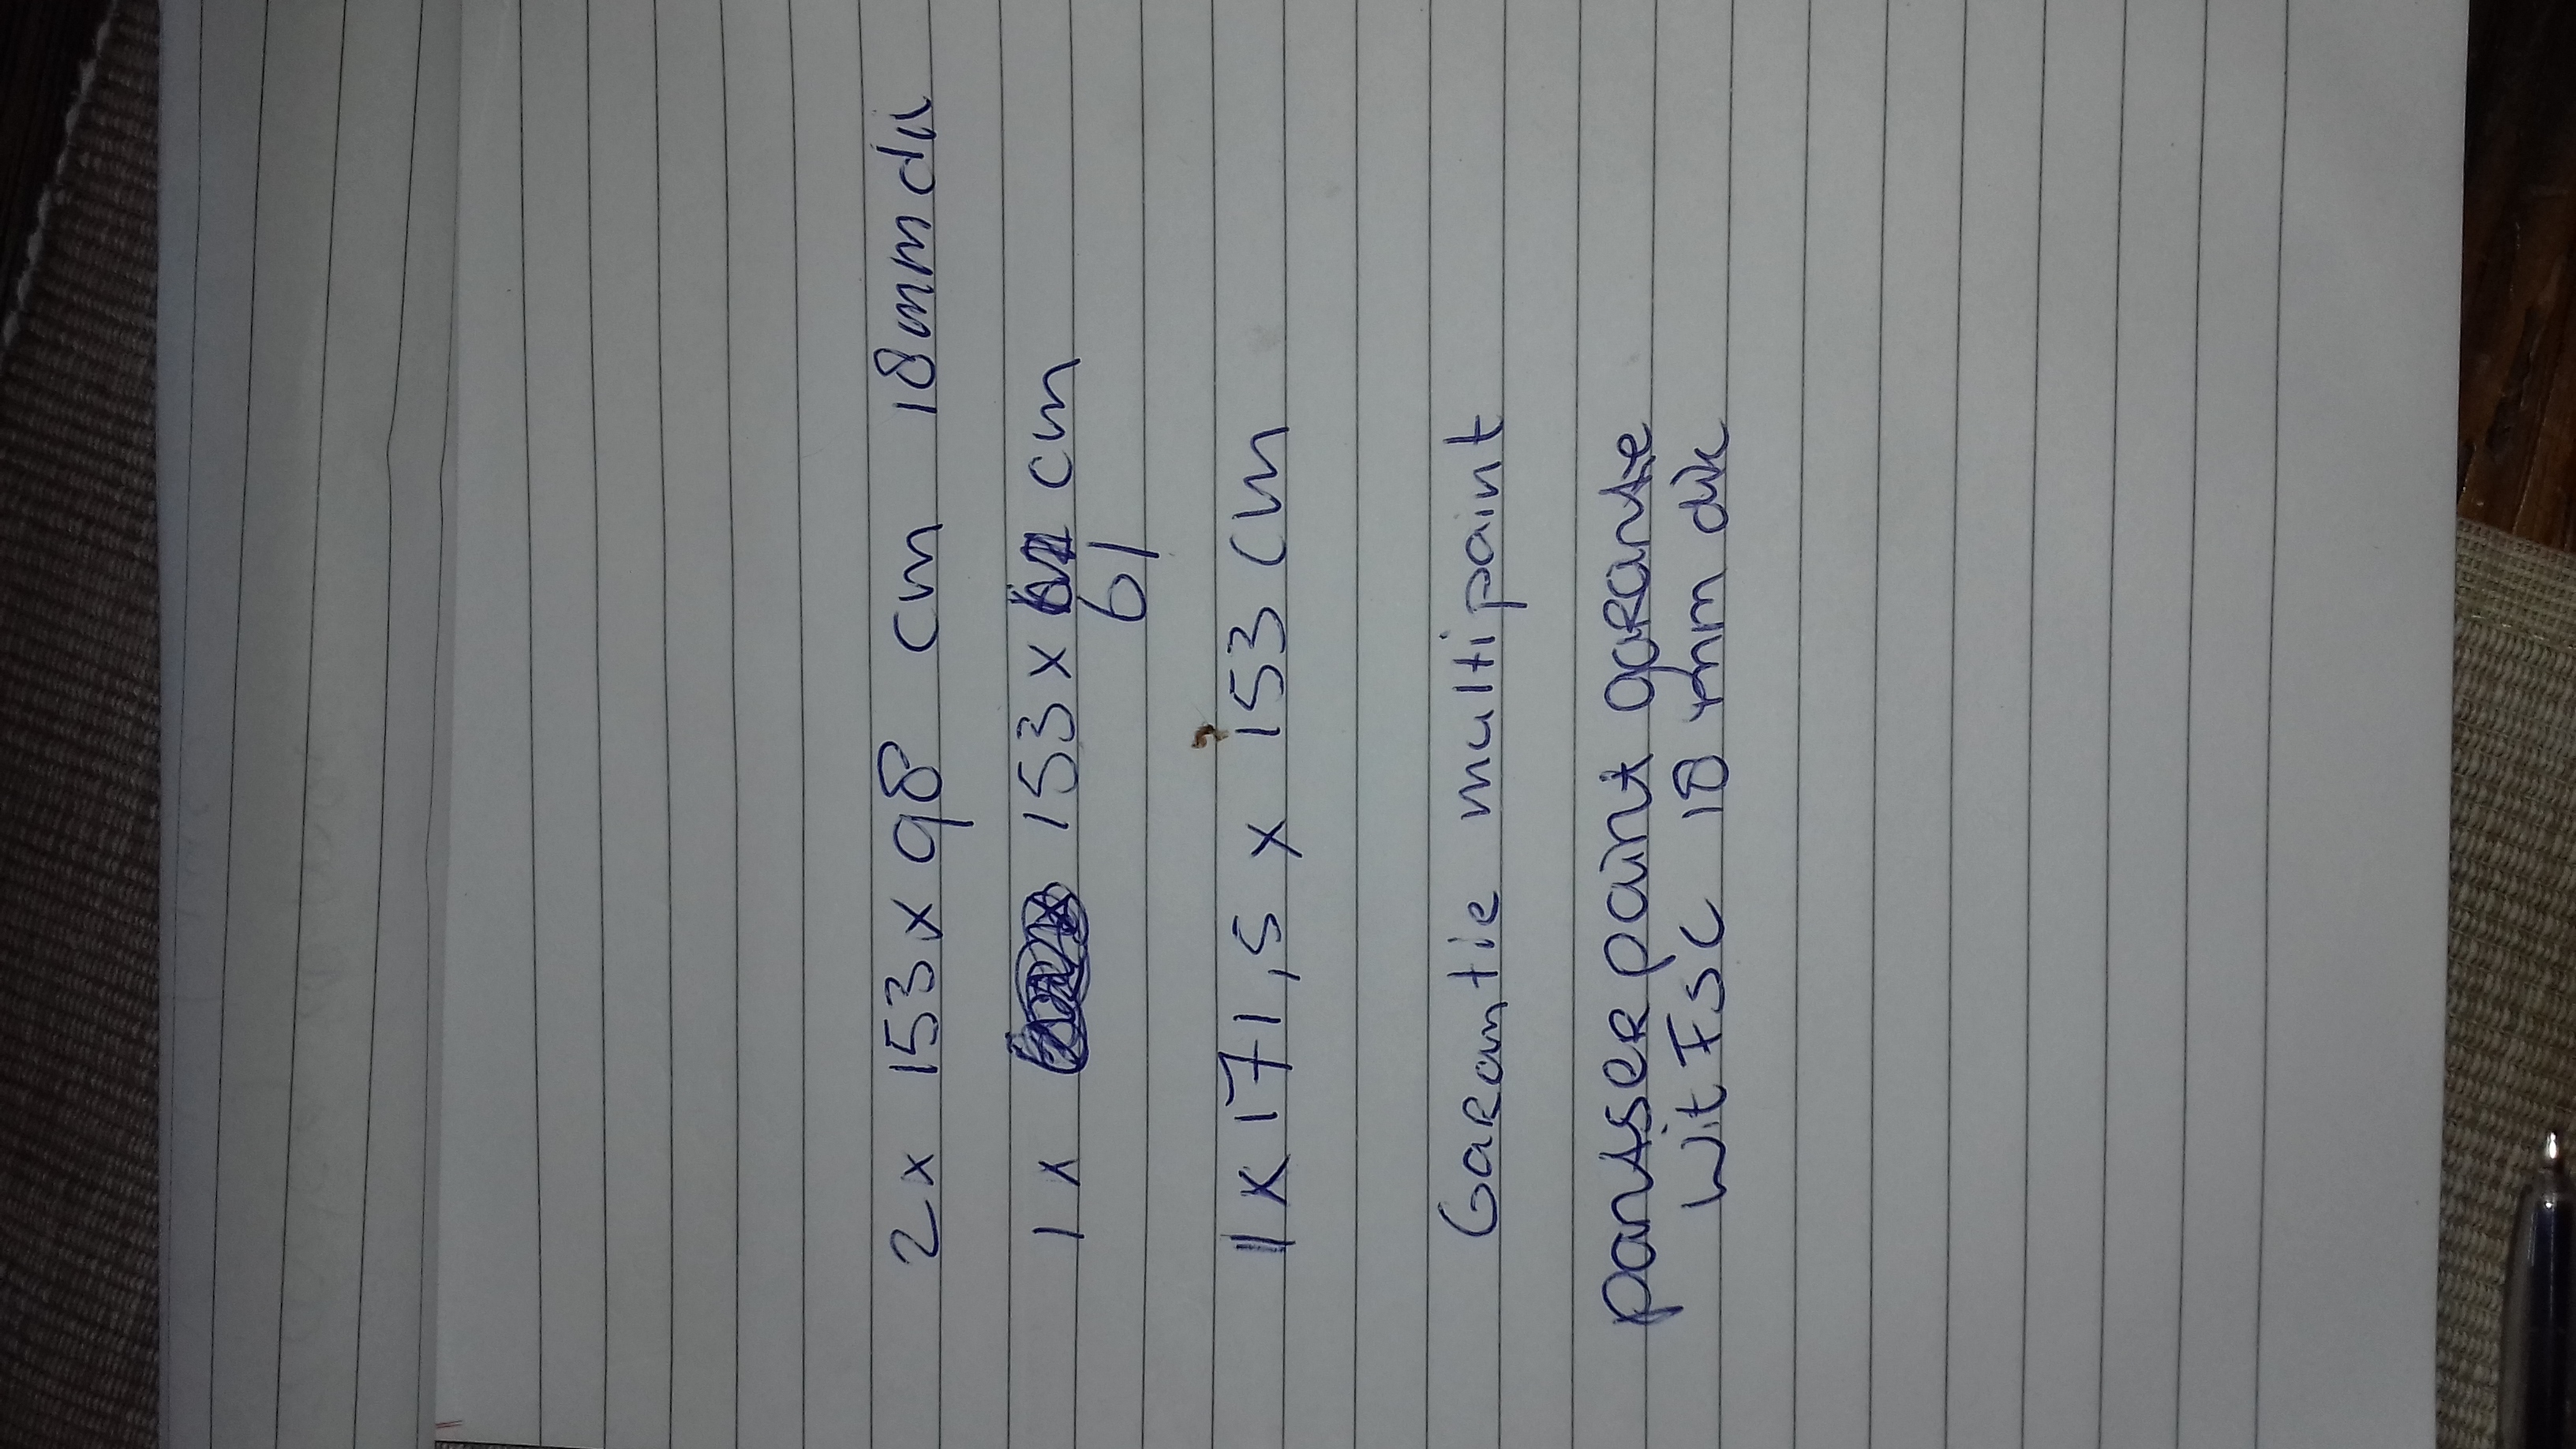 2x 153 x 98 cm 18mm dik
1x 153 x cm
61
1x 171,5 x 153 cm
Garantie multipaint
pantser paint garantie
wit FSC 18 mm dik